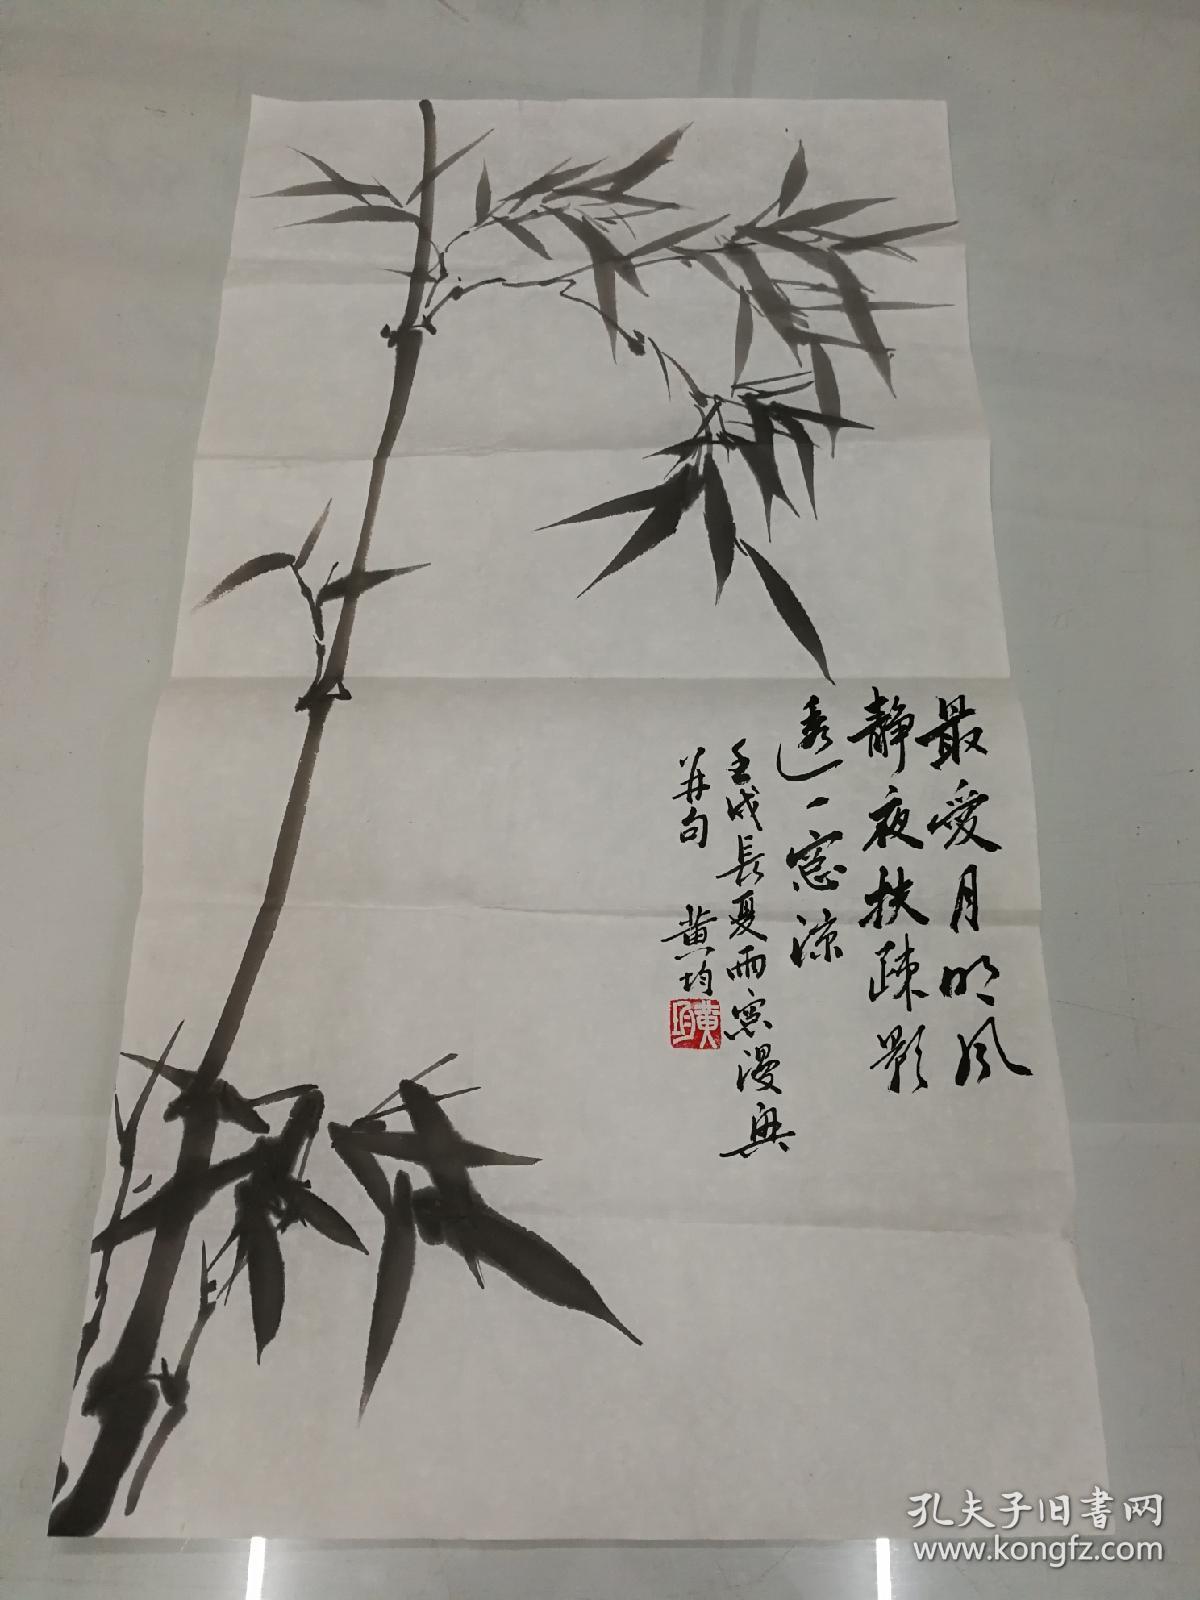 最愛月明風
靜夜扶疎影
透一窓涼
壬戌長夏雨窓漫興
并句 黄均
黄均
孔夫子旧书网
www.kongfz.com